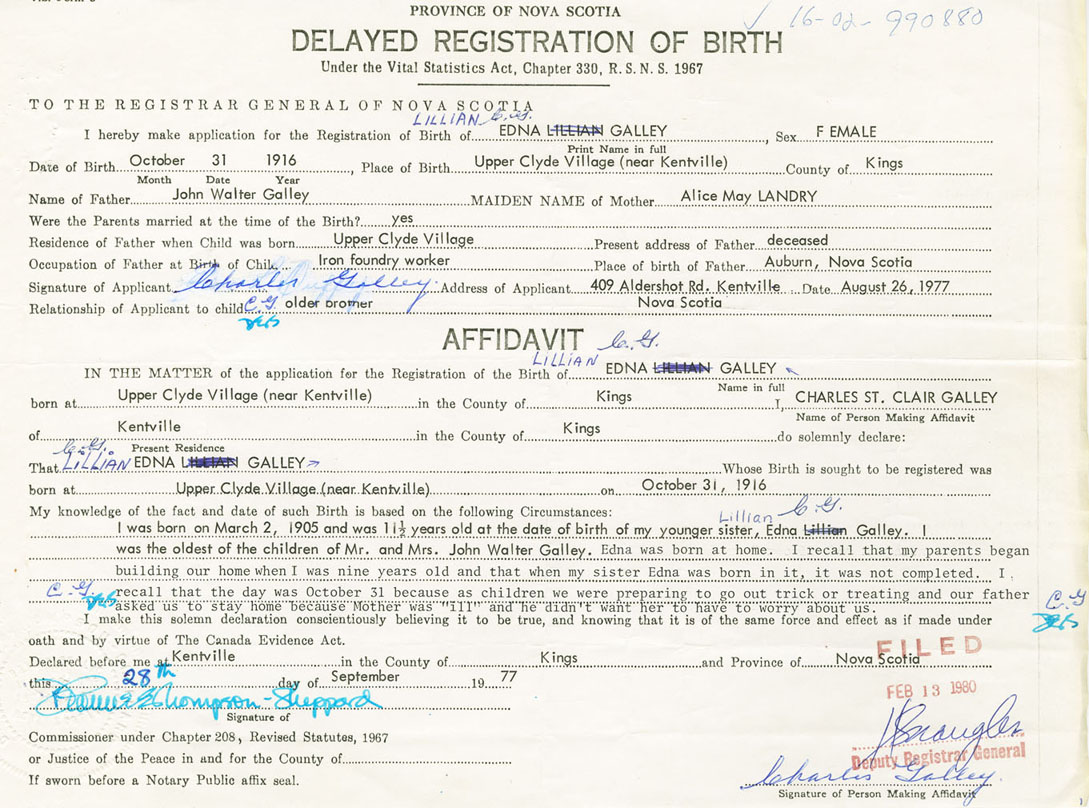 PROVINCE OF NOVA SCOTIA
16-02-990880
DELAYED REGISTRATION OF BIRTH
Under the Vital Statistics Act, Chapter 330, R.S.N.S. 1967
TO THE REGISTRAR GENERAL OF NOVA SCOTIA
LILLIAN C.G.
I hereby make application for the Registration of Birth of EDNA LILLIAN GALLEY, Sex FEMALE
Print Name in full
Date of Birth October 31 1916, Place of Birth Upper Clyde Village (near Kentville) County of Kings
Month Date Year
Name of Father John Walter Galley MAIDEN NAME of Mother Alice May LANDRY
Were the Parents married at the time of the Birth? yes
Residence of Father when Child was born Upper Clyde Village Present address of Father deceased
Occupation of Father at Birth of Child Iron foundry worker Place of birth of Father Auburn, Nova Scotia
Signature of Applicant Charles Galley Address of Applicant 409 Aldershot Rd. Kentville Date August 26, 1977
Relationship of Applicant to child C.G. older brother Nova Scotia
AFFIDAVIT
LILLIAN C.G.
IN THE MATTER of the application for the Registration of the Birth of EDNA LILLIAN GALLEY
Name in full
born at Upper Clyde Village (near Kentville) in the County of Kings I, CHARLES ST. CLAIR GALLEY
Name of Person Making Affidavit
of Kentville in the County of Kings do solemnly declare:
C.G. Present Residence
That LILLIAN EDNA LILLIAN GALLEY Whose Birth is sought to be registered was
born at Upper Clyde Village (near Kentville) on October 31, 1916
My knowledge of the fact and date of such Birth is based on the following Circumstances:
Lillian C.G.
I was born on March 2, 1905 and was 11½ years old at the date of birth of my younger sister, Edna Lillian Galley. I
was the oldest of the children of Mr. and Mrs. John Walter Galley. Edna was born at home. I recall that my parents began
building our home when I was nine years old and that when my sister Edna was born in it, it was not completed. I
C.G. recall that the day was October 31 because as children we were preparing to go out trick or treating and our father C.G.
asked us to stay home because Mother was "ill" and he didn't want her to have to worry about us.
I make this solemn declaration conscientiously believing it to be true, and knowing that it is of the same force and effect as if made under
oath and by virtue of The Canada Evidence Act.
FILED
Declared before me at Kentville in the County of Kings and Province of Nova Scotia
this 28th day of September 1977
FEB 13 1980
Thompson-Sheppard
Signature of
Commissioner under Chapter 208, Revised Statutes, 1967
or Justice of the Peace in and for the County of
Deputy Registrar General
If sworn before a Notary Public affix seal.
Charles Galley.
Signature of Person Making Affidavit